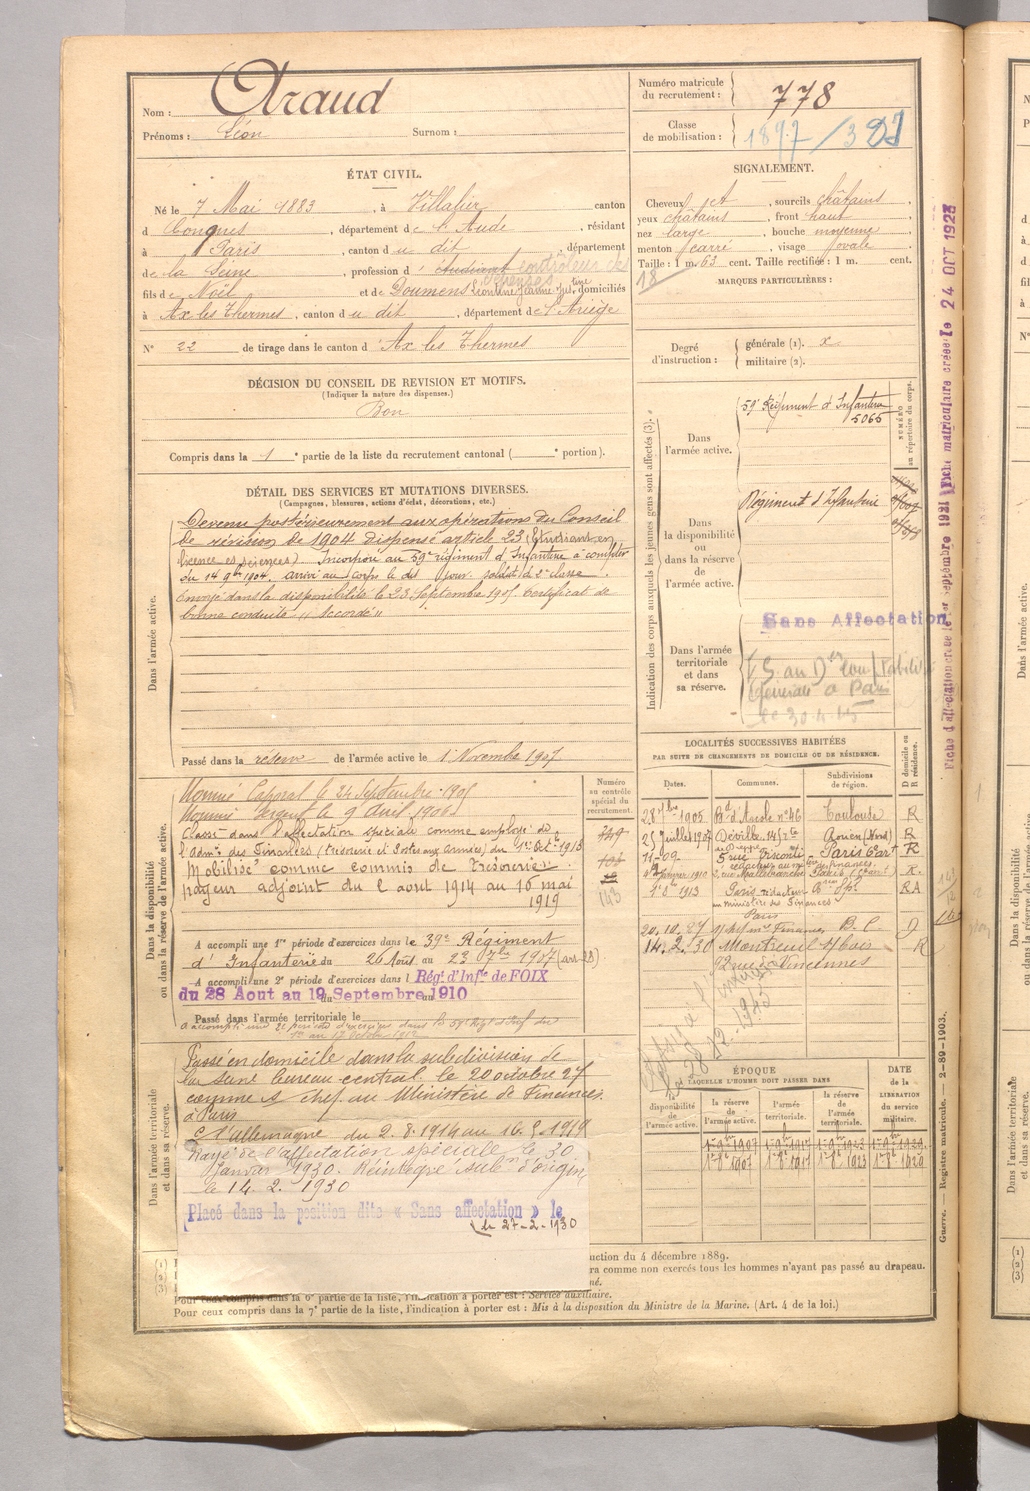 Nom : Araud
Prénoms : Léon Surnom :
Numéro matricule du recrutement : 778
Classe de mobilisation : 1897 /
ÉTAT CIVIL.
Né le 7 Mai 1883, à Villalier canton
d Conques, département de l'Aude, résidant
à Paris, canton du dit, département
de la Seine, profession d' étudiant contrôleur des dépenses
fils de Noël et de Doumens Léontine Jeanne domiciliés
à Ax les Thermes, canton du dit, département de l'Ariège
N° 22 de tirage dans le canton d'Ax les Thermes
SIGNALEMENT.
Cheveux ct, sourcils châtains,
yeux châtains, front haut
nez large, bouche moyenne
menton carré, visage ovale
Taille : 1 m. 63 cent. Taille rectifiée : 1 m. cent.
18
MARQUES PARTICULIÈRES :
Degré d'instruction : générale (1). x
militaire (2).
DÉCISION DU CONSEIL DE REVISION ET MOTIFS.
(Indiquer la nature des dispenses.)
Bon
Compris dans la 1e partie de la liste du recrutement cantonal ( e portion).
DÉTAIL DES SERVICES ET MUTATIONS DIVERSES.
(Campagnes, blessures, actions d'éclat, décorations, etc.)
Dans l'armée active.
Devenu postérieurement aux opérations du Conseil
de révision de 1904 dispensé article 23 (Etudiant en
licence es sciences). Incorporé au 59e régiment d'Infanterie à compter
du 14 9bre 1904. arrivé au corps le dit jour. soldat de 2e classe.
Envoyé dans la disponibilité le 23 Septembre 1905. Certificat de
bonne conduite "Accordé"
Passé dans la réserve de l'armée active le 1er Novembre 1907
Indication des corps auxquels les jeunes gens sont affectés (3).
NUMÉRO au répertoire du corps.
Dans l'armée active.
59e Régiment d'Infanterie
5065
Dans la disponibilité ou dans la réserve de l'armée active.
Régiment d'Infanterie
Dans l'armée territoriale et dans sa réserve.
Sans Affectation
Générale à Paris
Fiche d'affectation créée le 1er septembre 1921 Fiche matriculaire créée le 24 OCT 1928
Dans la disponibilité ou dans la réserve de l'armée active.
Numéro au contrôle spécial du recrutement.
Nommé Caporal le 24 Septembre 1905
Nommé Sergent le 9 Avril 1906
Classé dans l'affectation spéciale comme employé de
l'Admon des Finances (trésorerie et Postes aux armées) du 1er Oct. 1913
Mobilisé comme commis de trésorerie
payeur adjoint du 2 aout 1914 au 16 mai
1919
143
A accompli une 1re période d'exercices dans le 39e Régiment
d'Infanterie du 26 Août au 23 7bre 1907 (art. 23)
A accompli une 2e période d'exercices dans l Régt. d'Infie de FOIX
du 28 Aout au 19 Septembre 1910
Passé dans l'armée territoriale le
A accompli une 2e période d'exercice dans le 59e Régt d'Inf du
1er au 17 Octobre 1912
LOCALITÉS SUCCESSIVES HABITÉES
PAR SUITE DE CHANGEMENTS DE DOMICILE OU DE RÉSIDENCE.
Dates. Communes. Subdivisions de région. Domicile ou Résidence.
28 7bre 1905 Bd d'Arcole n° 46 Toulouse R
25 Juillet 1907 Déville Rouen (Nord) R
11-09 5 rue Visconti Paris 6e art R
rédacteur au m. des finances
février 1910 rue Mallebranche Paris R.
1913 Paris rédacteur RA
au ministère des Finances
Paris
20.10.27 s/chef mre Finances B.C. D
14.2.30 Montreuil s/bois R
rue de Vincennes
Dans l'armée territoriale et dans sa réserve.
Passé en domicile dans la subdivision de
la Seine bureau central le 20 octobre 27
comme s/ chef au Ministère de Finances
à Paris
C. l'Allemagne du 2.8.1914 au 16.5.1919
Rayé de l'affectation spéciale le 30
Janvier 1930. Réintègre sub.on d'origine
le 14. 2. 1930
Placé dans la position dite « Sans affectation » le
le 27-2-1930
ÉPOQUE
À LAQUELLE L'HOMME DOIT PASSER DANS
DATE de la LIBÉRATION du service militaire.
la disponibilité de l'armée active. la réserve de l'armée active. l'armée territoriale. la réserve de l'armée territoriale.
1er 9bre 1907 1er 9bre 1917 1er 9bre 1923 1er 9bre 1929
1er 8e 1907 1er 8e 1917 1er 8e 1923 1er 8e 1929
(1)
(2)
(3)
uction du 4 décembre 1889.
ra comme non exercés tous les hommes n'ayant pas passé au drapeau.
né.
Pour ceux compris dans la 6e partie de la liste, l'indication à porter est : Service auxiliaire.
Pour ceux compris dans la 7e partie de la liste, l'indication à porter est : Mis à la disposition du Ministre de la Marine. (Art. 4 de la loi.)
Guerre. — Registre matricule. — 2-89-1903.